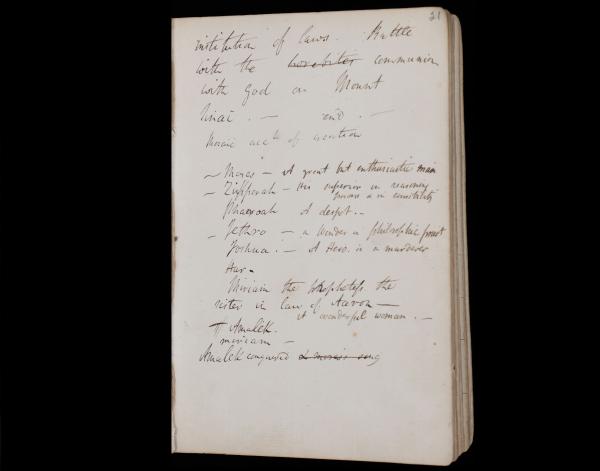 21
institution of laws. Battle
with the communion
with God on Mount
Sinai. — end. —
Mosaic acct of creation
~ Moses — A great but enthusiastic man
– Zipporah – His superior in reasoning
powers & in sensibility
Phaeroah A despot. –
– Jethro – a philosophic priest
Joshua. – A Hero. ie a murderer
Hur –
Miriam the prophetess the
sister in law of Aaron —
A wonderful woman. –
Amalek.
miriam –
Amalek conquered & moses's song